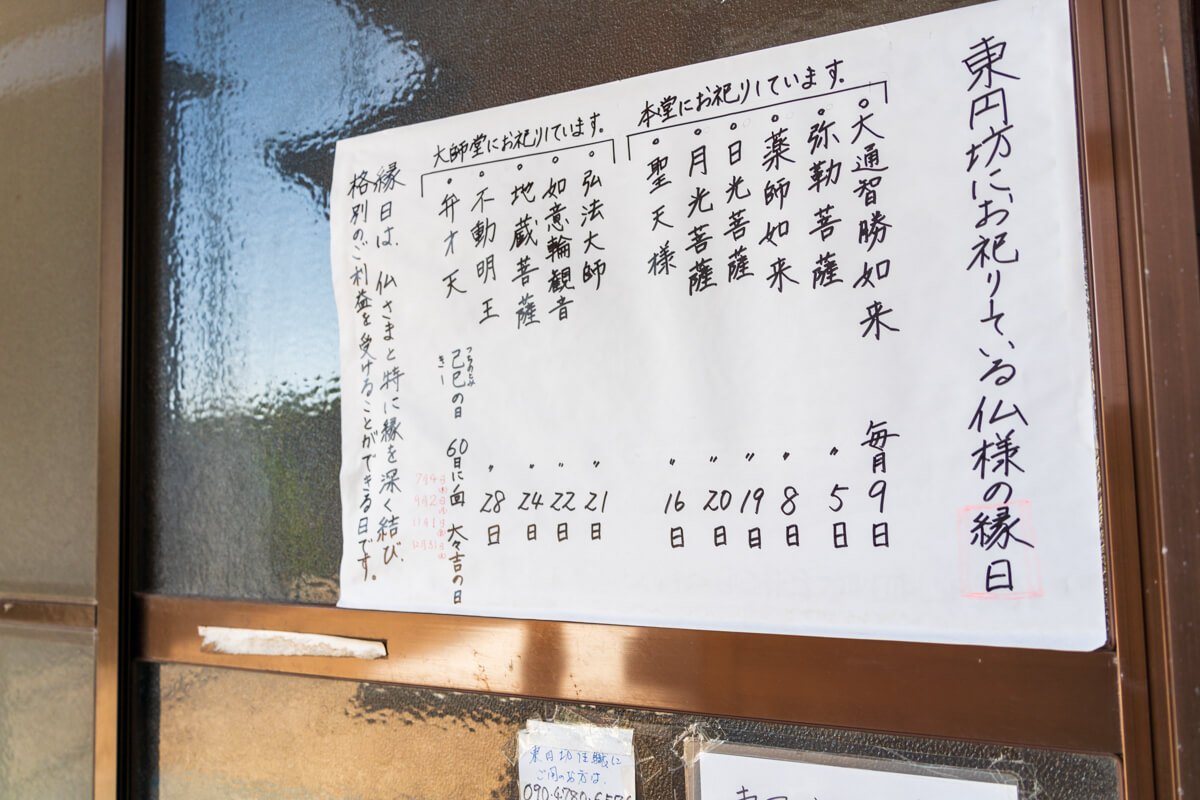 東円坊にお祀りている仏様の縁日
本堂にお祀りしています。
大通智勝如来 毎月9日
弥勒菩薩 〃5日
薬師如来 〃8日
日光菩薩 〃19日
月光菩薩 〃20日
聖天様 〃16日
大師堂にお祀りしています。
弘法大師 〃21日
如意輪観音 〃22日
地蔵菩薩 〃24日
不動明王 〃28日
弁才天 己巳の日 60日に一回 大々吉の日
つちのとみ
縁日は、仏さまと特に縁を深く結び、
格別のご利益を受けることができる日です。
東円坊住職に
ご用のお方は、